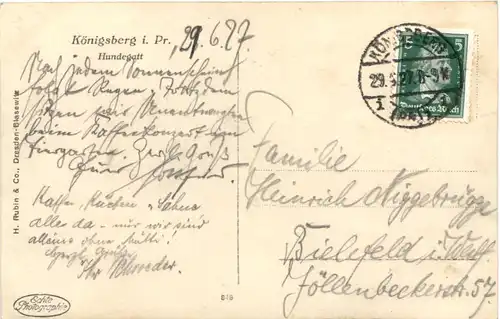 Königsberg i. Pr.
Hundegatt
29.6.27
Nach jedem Sonnenschein
folgt Regen, trotzdem
sitzen wir
beim Kaffeekonzert im
Tiergarten. Herzl. Gruß
Euer
Kaffee, Kuchen, Sahne
alles da - nur wir sind
alleine ohne Mutti!
Herzl. Grüße
Ihr Schroeder
Familie
Heinrich Niggebrügge
Bielefeld i. Westf.
Jöllenbeckerstr. 57.
H. Rubin & Co., Dresden-Blasewitz
Echte
Photographie
KÖNIGSBERG
(PR)
1
5
5
Deutsches Reich